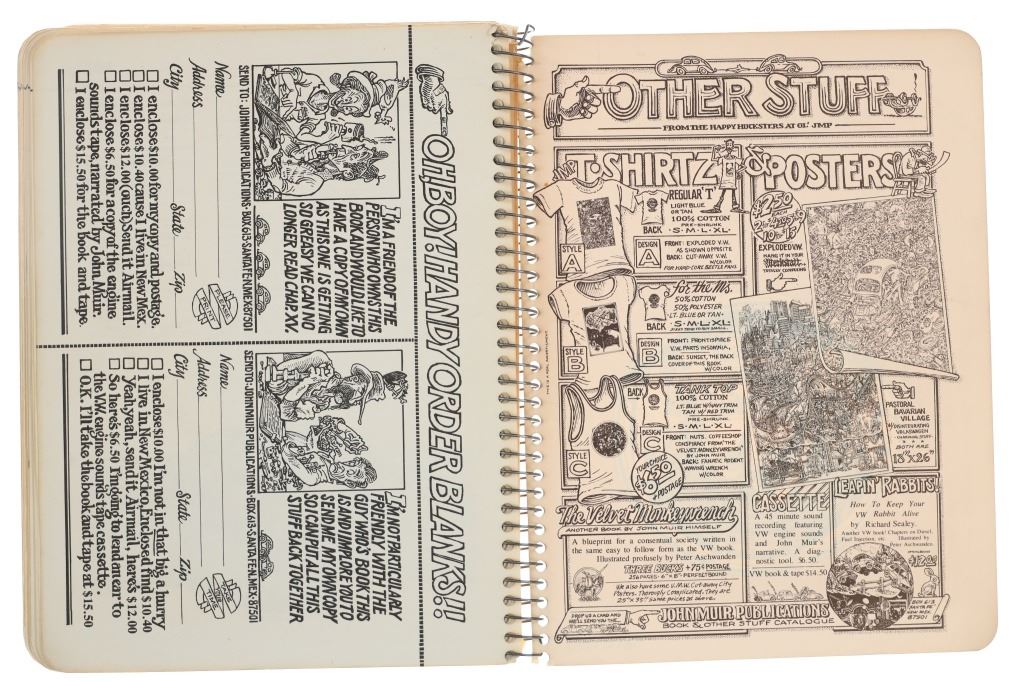 OH, BOY! HANDY ORDER BLANKS!!
I'M A FRIEND OF THE
PERSON WHO OWNS THIS
BOOK AND WOULD LIKE TO
HAVE A COPY OF MY OWN
AS THIS ONE IS GETTING
SO GREASY WE CAN NO
LONGER READ CHAP. XV.
SEND TO: JOHN MUIR PUBLICATIONS·BOX 613·SANTA FE·N.MEX·87501
Name
Address
City State Zip
I enclose $10.00 for my copy and postage.
I enclose $10.40 cause I live in New Mex.
I enclose $12.00 (ouch) Send it Airmail.
I enclose $6.50 for a copy of the engine
sounds tape, narrated by John Muir.
I enclose $15.50 for the book and tape.
I'M NOT PARTICULARLY
FRIENDLY WITH THE
GUY WHO'S BOOK THIS
IS AND IMPLORE YOU TO
SEND ME MY OWN COPY
SO I CAN PUT ALL THIS
STUFF BACK TOGETHER
SEND TO: JOHN MUIR PUBLICATIONS·BOX 613·SANTA FE·N.MEX·87501
Name
Address
City State Zip
I enclose $10.00 I'm not in that big a hurry
I live in New Mexico, Enclosed find $10.40
Yeah, yeah, send it Airmail, here's $12.00
So here's $6.50 I'm going to lend an ear to
the VW. engine sounds tape cassette.
O.K. I'll take the book and tape at $15.50
OTHER STUFF
FROM THE HAPPY HUCKSTERS AT OL' JMP
T-SHIRTZ
REGULAR 'T'
LIGHT BLUE
OR TAN
100% COTTON
PRE-SHRUNK
·S·M·L·XL
BACK
STYLE
A
DESIGN
A
FRONT: EXPLODED V.W.
AS SHOWN OPPOSITE
BACK: CUT-AWAY V.W.
W/COLOR
FOR HARD CORE BEETLE FANS
for the Ms.
50% COTTON
50% POLYESTER
LT. BLUE OR TAN
·S·M·L·XL
BACK
STYLE
B
DESIGN
B
FRONT: FRONTISPIECE
V.W. PARTS INSOMNIA,
BACK: SUNSET, THE BACK
COVER OF THIS BOOK
W/COLOR
TANK TOP
100% COTTON
LT. BLUE W/NAVY TRIM
TAN W/RED TRIM
PRE-SHRUNK
·S·M·L·XL
BACK
STYLE
C
DESIGN
C
FRONT: NUTS, COFFEESHOP
CONSPIRACY FROM THE
VELVET MONKEYWRENCH
BY JOHN MUIR
BACK: FANATIC RODENT
WAVING WRENCH
W/COLOR
YOUR CHOICE
POSTAGE
& POSTERS
$2.50
EXPLODED V.W.
HANG IT IN YOUR
Werkstatt
TOTALLY CONFUSING
PASTORAL
BAVARIAN
VILLAGE
W/DISINTEGRATING
VOLKSWAGEN
BOTH ARE
13"X26"
The Velvet Monkeywrench
ANOTHER BOOK BY JOHN MUIR HIMSELF
A blueprint for a consentual society written
in the same easy to follow form as the VW book.
Illustrated profusely by Peter Aschwanden
THREE BUCKS + 75¢ POSTAGE
256 PAGES·6"X 8"·PERFECT BOUND
We also have some V.M.W. Cut-away City
Posters. Thoroughly Complicated. They are
25"x 35" Same prices as above.
CASSETTE
A 45 minute sound
recording featuring
VW engine sounds
and John Muir's
narrative. A diag-
nostic tool. $6.50
VW book & tape $14.50
LEAPIN' RABBITS!
How To Keep Your
VW Rabbit Alive
by Richard Sealey.
Another VW book! Chapters on Diesel,
Fuel Injection, etc. Illustrated by
Peter Aschwanden.
BOX 613
SANTA FE
NEW MEX.
87501
DROP US A CARD AND
WE'LL SEND YOU THE...
JOHN MUIR PUBLICATIONS
BOOK & OTHER STUFF CATALOGUE